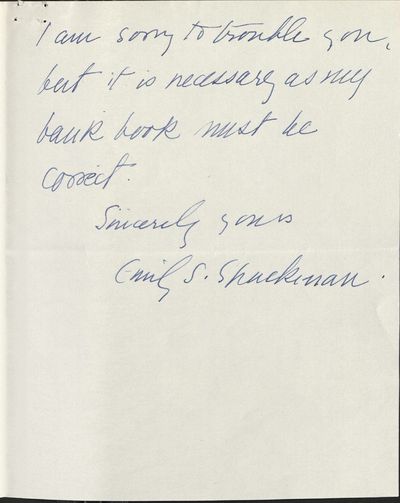 I am sorry to trouble you,
but it is necessary as my
bank book must be
correct.
Sincerely yours
Emily S. Shackman.